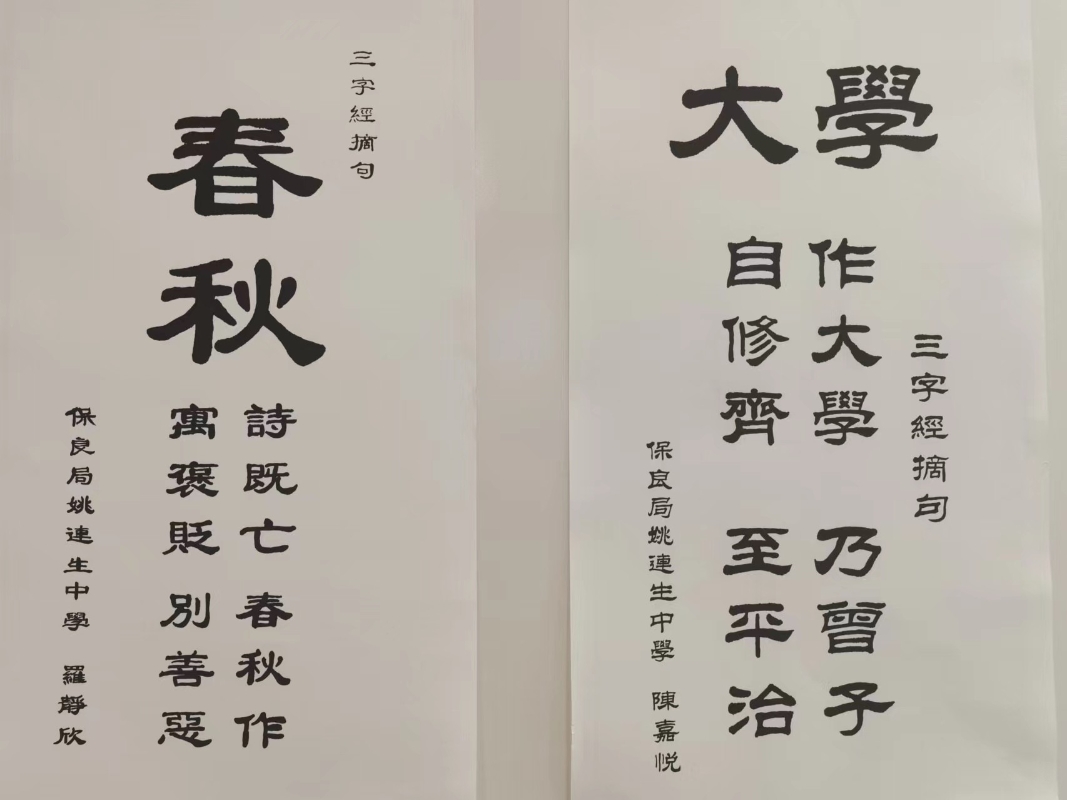 三字經摘句
春秋
詩既亡 春秋作
寓褒貶 別善惡
保良局姚連生中學 羅靜欣
大學
三字經摘句
作大學 乃曾子
自修齊 至平治
保良局姚連生中學 陳嘉悅